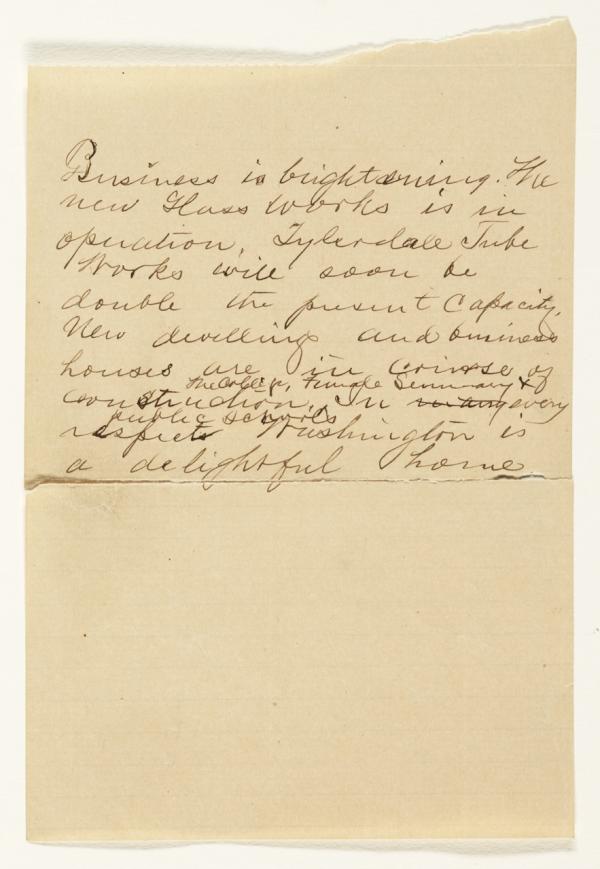 Business is brightening. The
new Glass Works is in
operation, Tylerdale Tube
Works will soon be
double the present Capacity.
New dwellings and business
houses are in course of
The College, Female Seminary &
construction. In every
public schools
respects Washington is
a delightful home